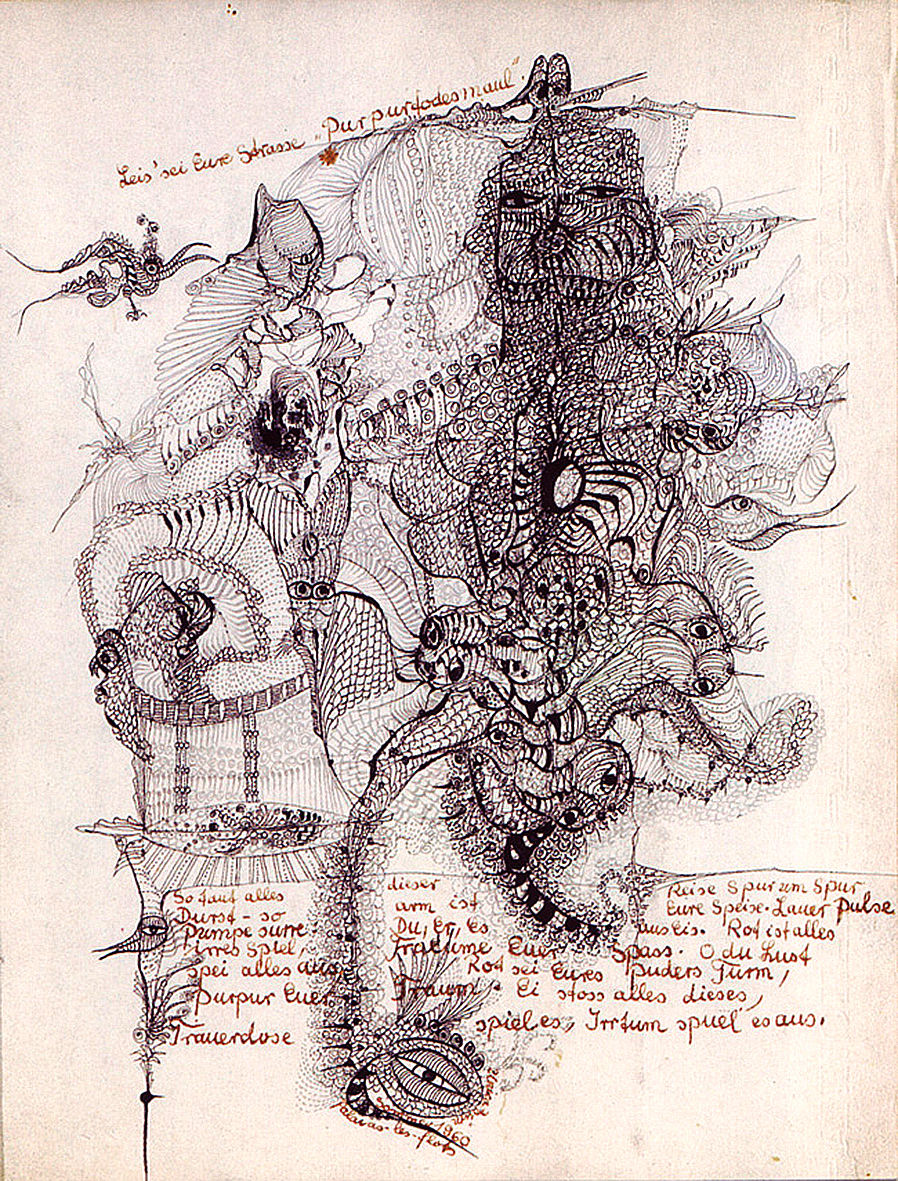 Leis' sei Eure Strasse „Purpurtodesmaul“
So tauf alles
Durst - so
Pumpe surre
irres Spiel,
spei alles aus,
Purpur Euer
Trauerdose
dieser
arm ist
Du, Er, Es
Traeume Euer Spass. O du Lust
Rot sei Eures Puders Turm,
Traum. Ei stoss alles dieses,
spiel es, Irrtum spuel' es aus.
Reise Spur um Spur
Eure Speise. Lauer Pulse
aus Eis. Rot ist alles
1960
Palavas-les-flots